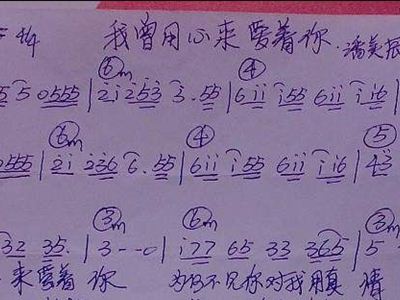 我曾用心来爱着你 潘美辰
⑥m ④
5 5 0555 | 2i 253 3 . 55 | 6ii i55 6ii i16 |
⑥m ④ ⑤
0555 | 2i 236 6 . 55 | 6ii i55 6ii i16 | 43
③m ⑥m ③m
32 35. | 3 - - 0 | i77 65 33 365 | 5
来爱着 你 为何不见你对我用真 情